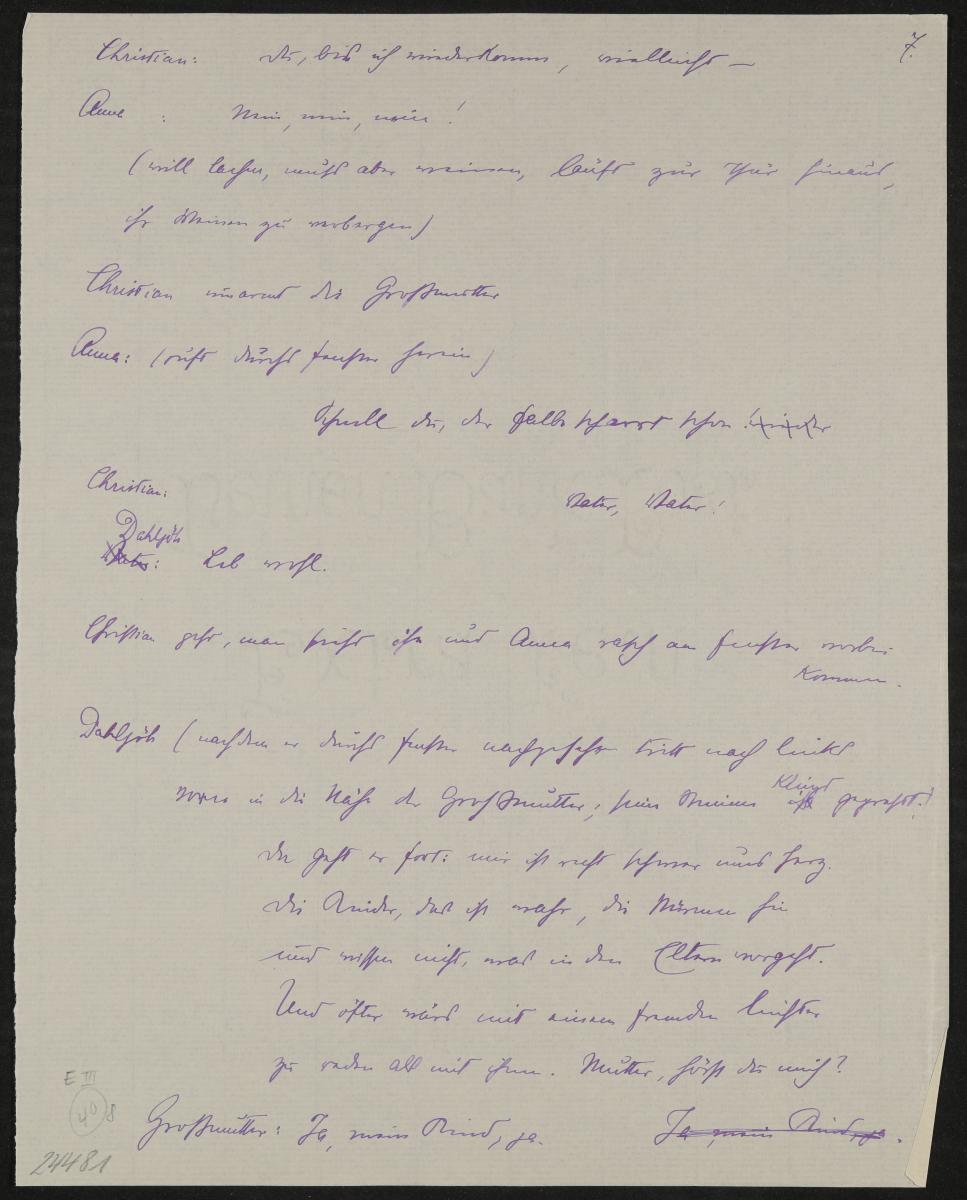 7.
Christian: Du, bis ich wiederkomm, vielleicht —
Anna : Nein, nein, nein!
(will lachen, muß aber weinen, läuft zur Thür hinaus,
ihr Weinen zu verbergen)
Christian umarmt die Großmutter
Anna: (ruft durchs Fenster herein)
Schnell du, der Falbe scharrt schon!
Christian: Vater, Vater!
Dahljöh
Vater: Leb wohl.
Christian geht, man sieht ihn und Anna rasch am Fenster vorbei
kommen.
Dahljöh (nachdem er durchs Fenster nachgesehen tritt nach links
vorn in die Nähe der Großmutter; seine Stimme klingt gepreßt:)
Da geht er fort: mir ist recht schwer ums Herz.
Die Kinder, das ist wahr, die stürmen hin
und wissen nicht, was in den Eltern vorgeht.
Und öfter wärs mit einem Fremden leichter
zu reden als mit ihnen. Mutter, hörst du mich?
Großmutter: Ja, mein Kind, ja. Ja, mein Kind, ja.
E III
40 8
24481